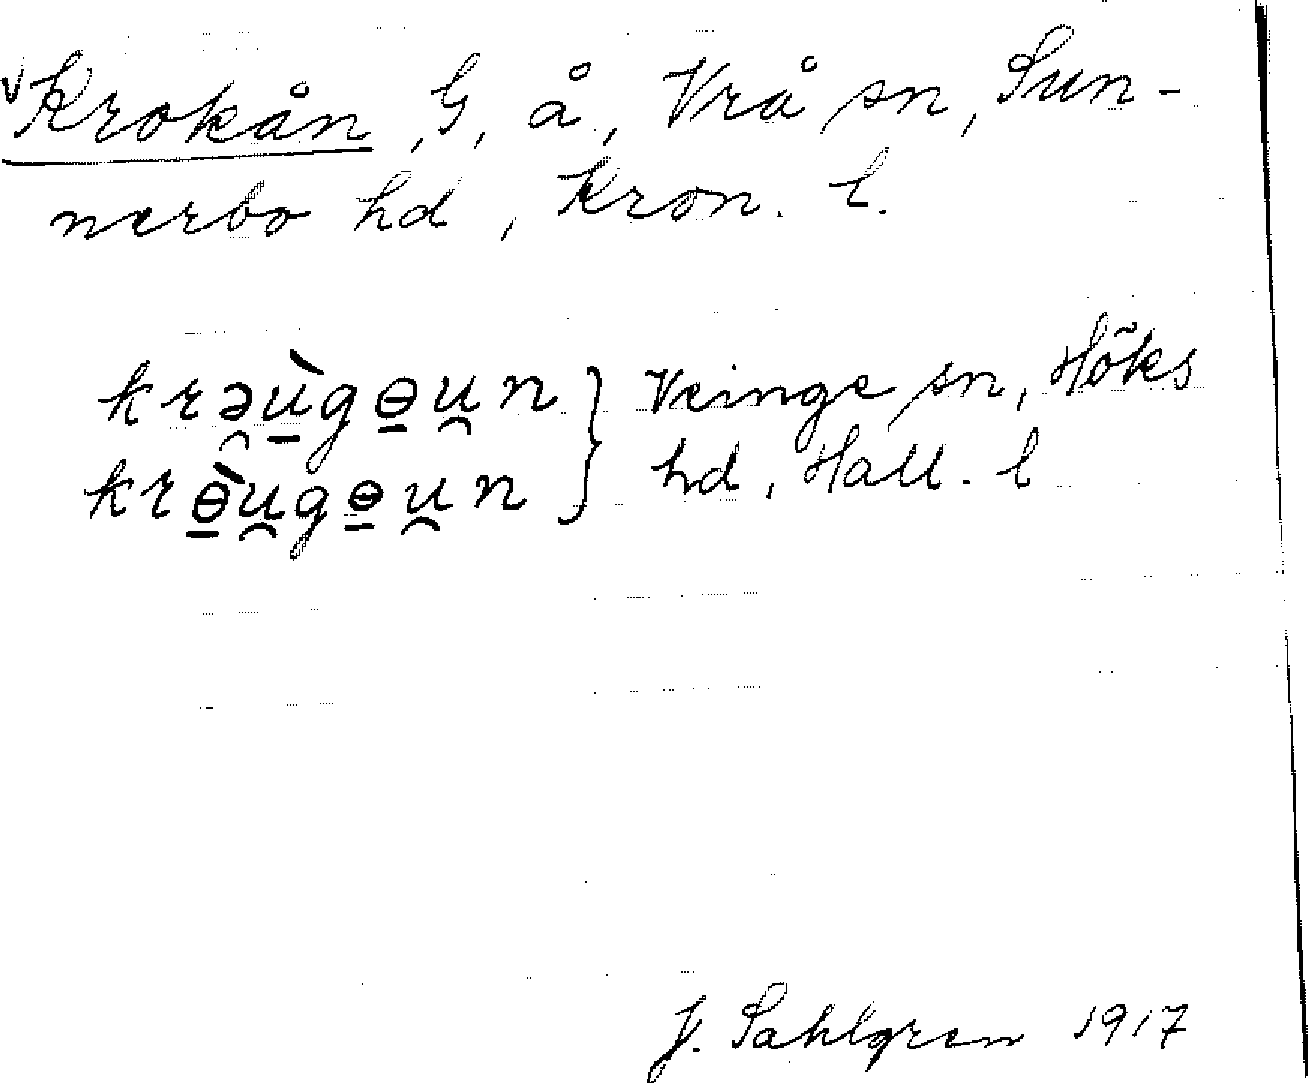 Krokån, G, å, Vrå sn, Sun-
nerbo hd, Kron. l.
krə̯ùgɵu̯n } Veinge sn, Höks
krɵ̀u̯gɵu̯n } hd, Hall. l
J. Sahlgren 1917